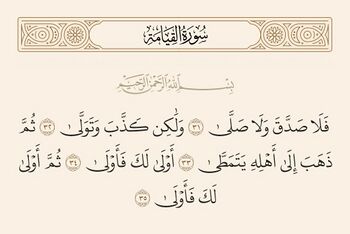 سُورَةُ القِيَامَةِ
بِسْمِ اللَّهِ الرَّحْمَٰنِ الرَّحِيمِ
فَلَا صَدَّقَ وَلَا صَلَّىٰ ٣١ وَلَٰكِن كَذَّبَ وَتَوَلَّىٰ ٣٢ ثُمَّ
ذَهَبَ إِلَىٰ أَهْلِهِ يَتَمَطَّىٰ ٣٣ أَوْلَىٰ لَكَ فَأَوْلَىٰ ٣٤ ثُمَّ أَوْلَىٰ
لَكَ فَأَوْلَىٰ ٣٥